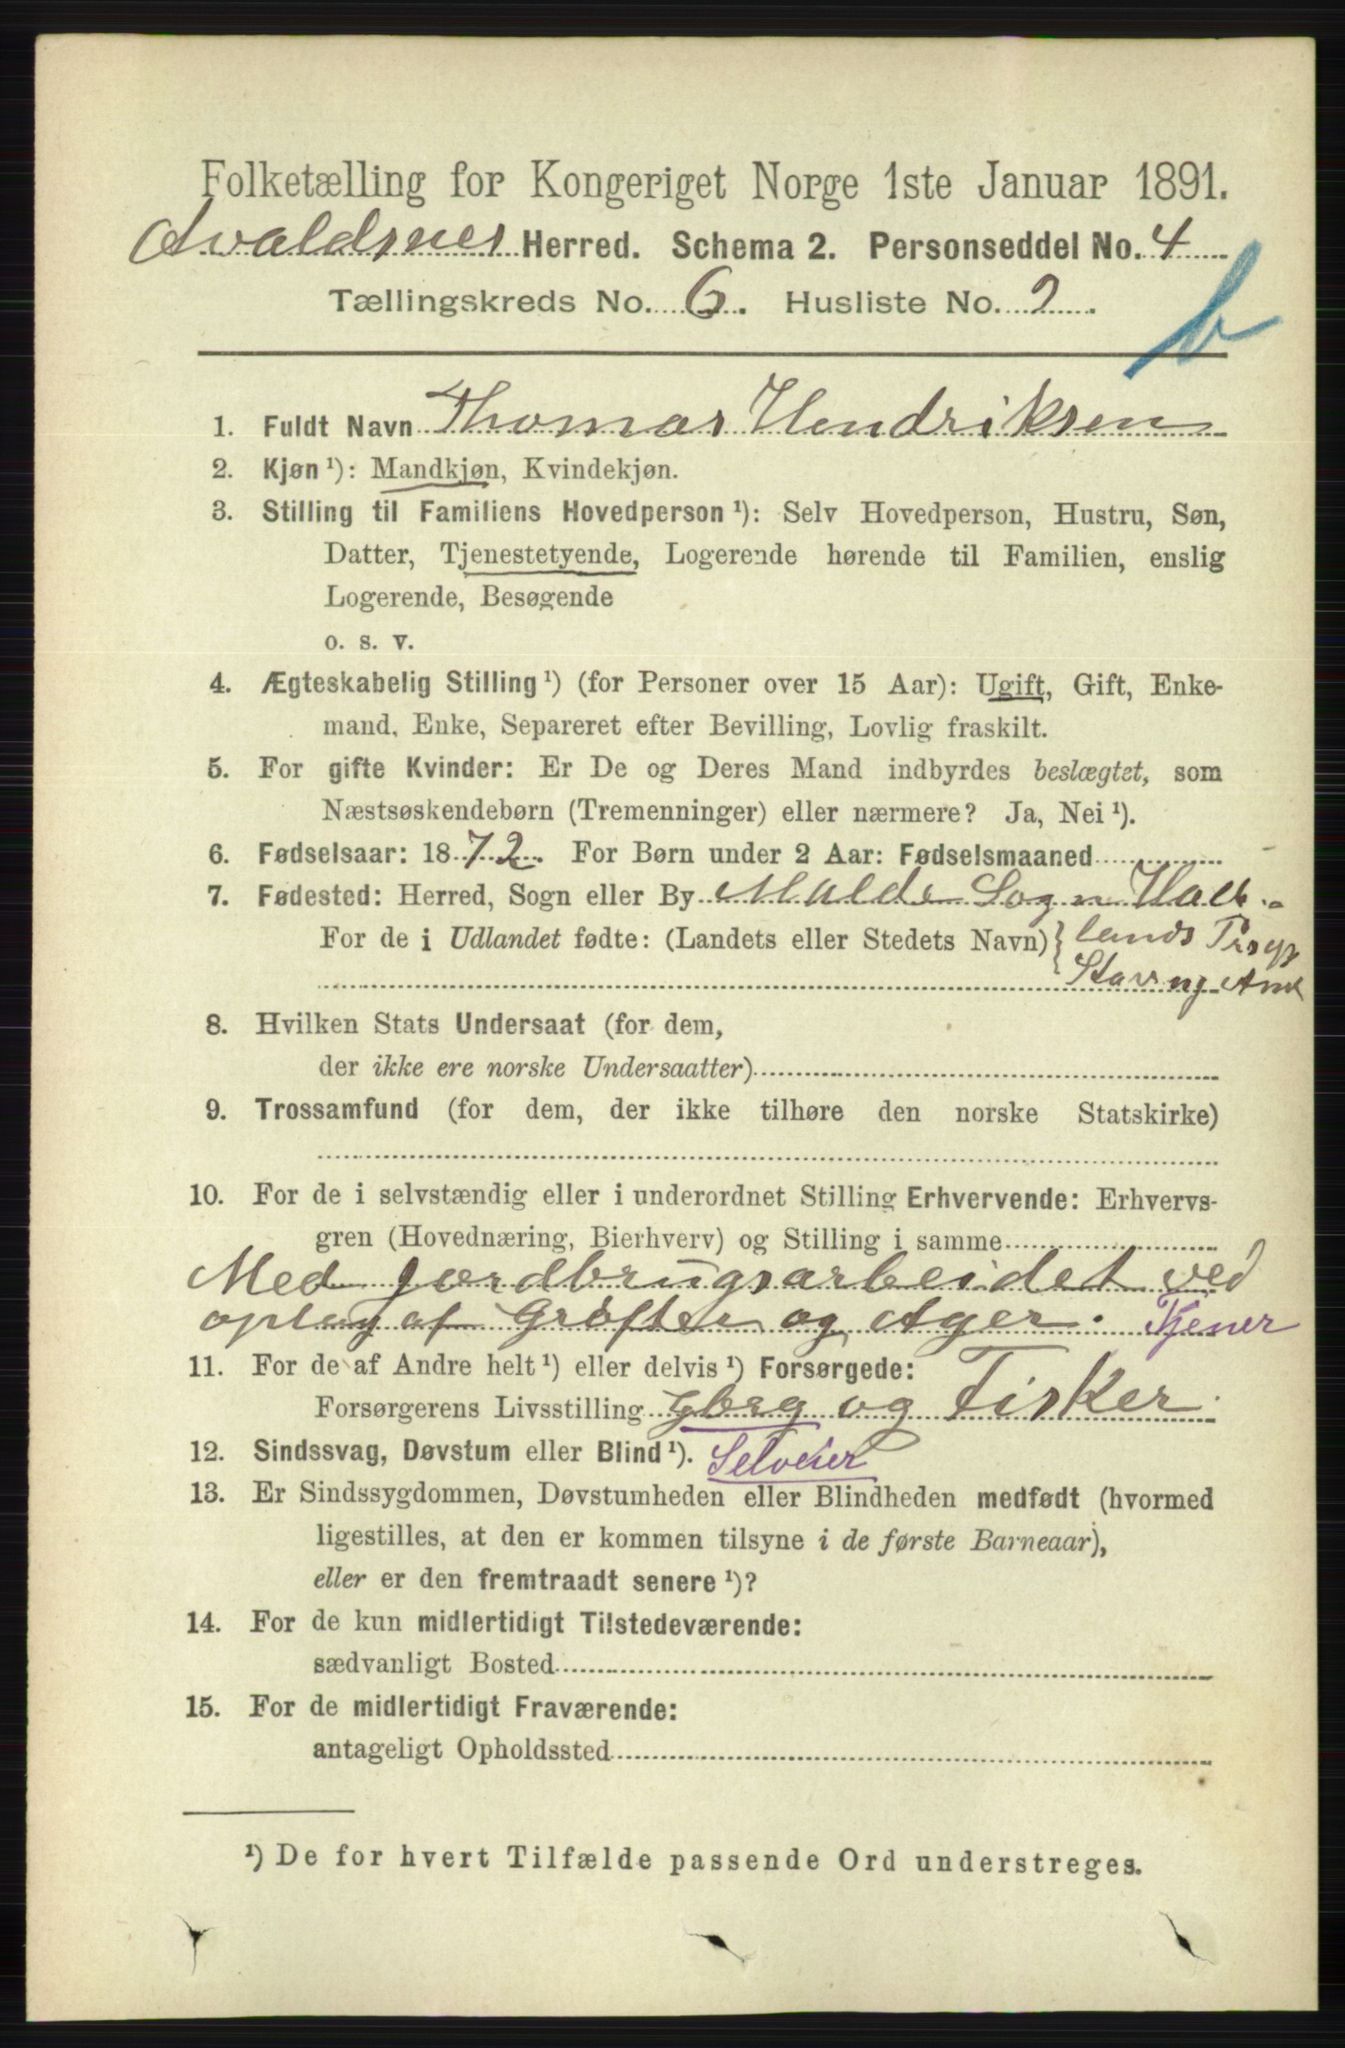 Folketælling for Kongeriget Norge 1ste Januar 1891.
Avaldsnes Herred. Schema 2. Personseddel No. 4
Tællingskreds No. 6. Husliste No. 2
b
1. Fuldt Navn Thomas Hendriksen
2. Kjøn ¹): Mandkjøn, Kvindekjøn.
3. Stilling til Familiens Hovedperson ¹): Selv Hovedperson, Hustru, Søn,
Datter, Tjenestetyende, Logerende hørende til Familien, enslig
Logerende, Besøgende
o. s. v.
4. Ægteskabelig Stilling ¹) (for Personer over 15 Aar): Ugift, Gift, Enke-
mand, Enke, Separeret efter Bevilling, Lovlig fraskilt.
5. For gifte Kvinder: Er De og Deres Mand indbyrdes beslægtet, som
Næstsøskendebørn (Tremenninger) eller nærmere? Ja, Nei ¹).
6. Fødselsaar: 1872. For Børn under 2 Aar: Fødselsmaaned
7. Fødested: Herred, Sogn eller By Malde Sogn
For de i Udlandet fødte: (Landets eller Stedets Navn) lands
8. Hvilken Stats Undersaat (for dem,
der ikke ere norske Undersaatter)
9. Trossamfund (for dem, der ikke tilhøre den norske Statskirke)
10. For de i selvstændig eller i underordnet Stilling Erhvervende: Erhvervs-
gren (Hovednæring, Bierhverv) og Stilling i samme
Med jordbrugsarbeidet ved
oplag af Grøfter og Ager. Tjener
11. For de af Andre helt ¹) eller delvis ¹) Forsørgede:
Forsørgerens Livsstilling gbrg og Fisker
12. Sindssvag, Døvstum eller Blind ¹). Selveier
13. Er Sindssygdommen, Døvstumheden eller Blindheden medfødt (hvormed
ligestilles, at den er kommen tilsyne i de første Barneaar),
eller er den fremtraadt senere ¹)?
14. For de kun midlertidigt Tilstedeværende:
sædvanligt Bosted
15. For de midlertidigt Fraværende:
antageligt Opholdssted
¹) De for hvert Tilfælde passende Ord understreges.